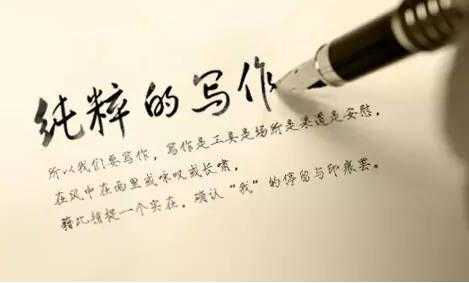 纯粹的写作
所以我们要写作，写作是工具是场所是来道是安慰，
在风中在雨里或咏叹或长啸，
藉此捕捉一个实在，确认“我”的停留与印痕罢。